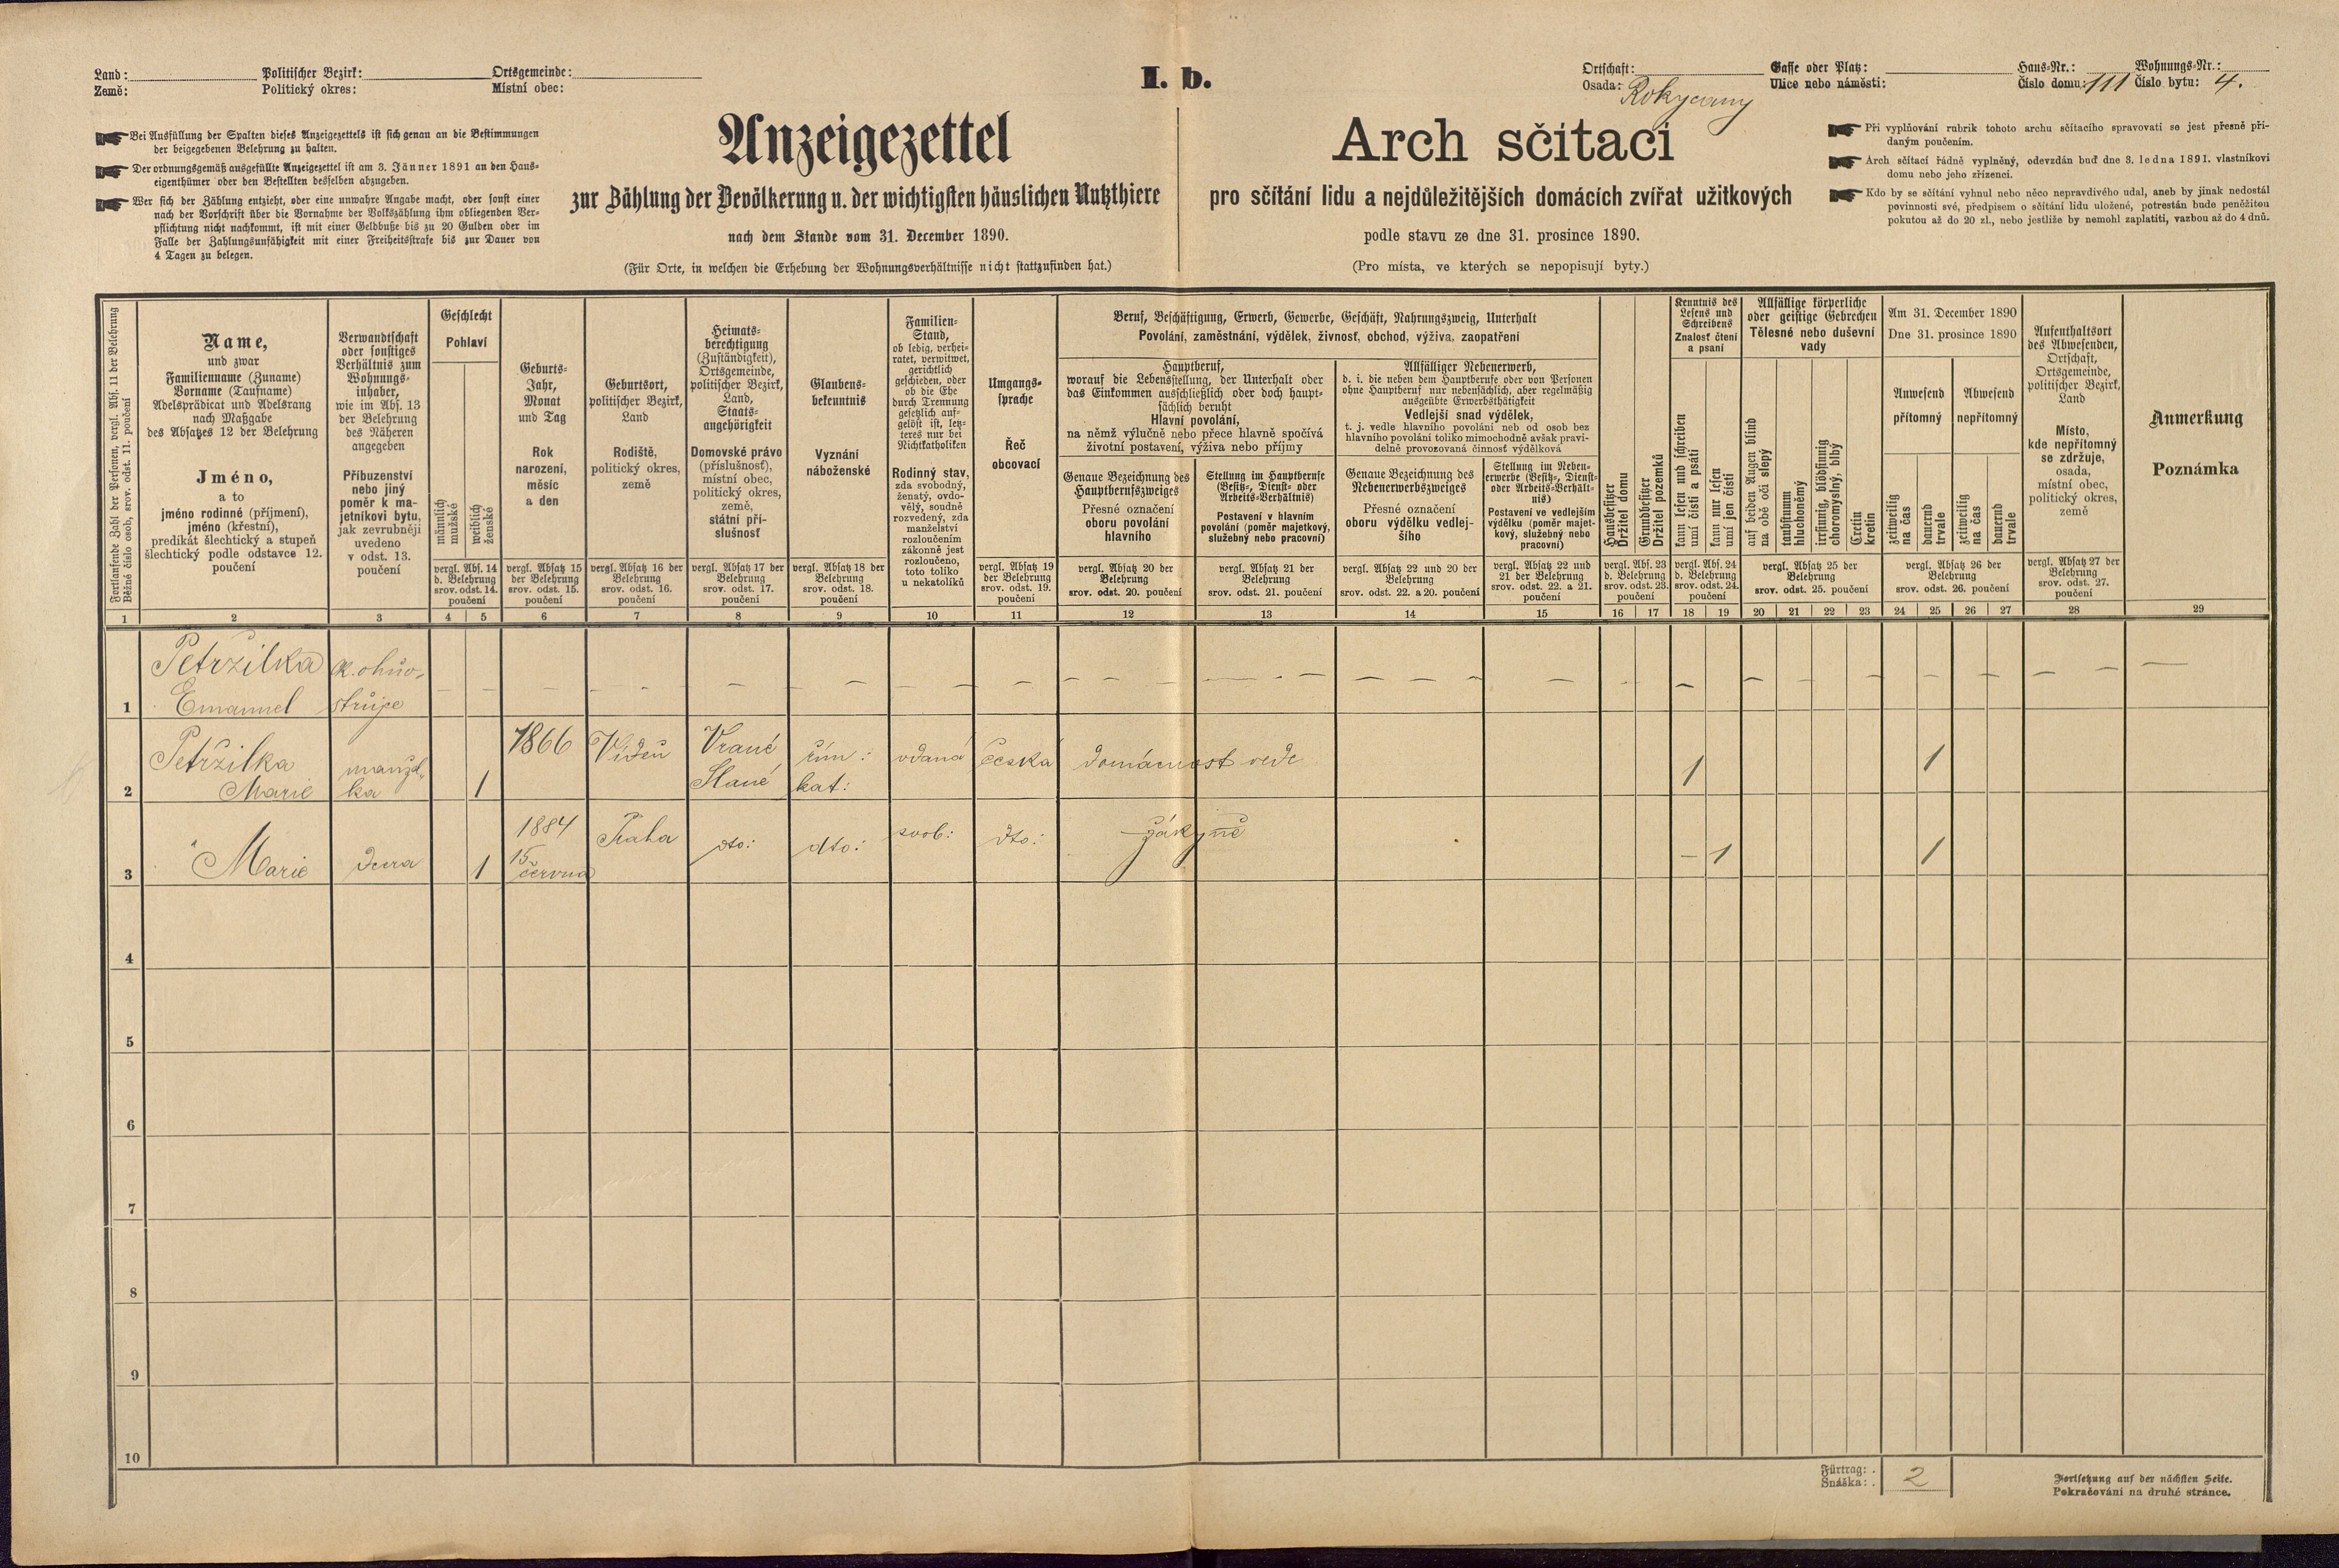 Land:
Země:
Politischer Bezirk:
Politický okres:
Ortsgemeinde:
Místní obec:
I. b.
Ortschaft:
Osada: Rokycany
Gasse oder Platz:
Ulice nebo náměstí:
Haus-Nr.:
Číslo domu: 111
Wohnungs-Nr.:
Číslo bytu: 4.
Bei Ausfüllung der Spalten dieses Anzeigezettels ist sich genau an die Bestimmungen
der beigegebenen Belehrung zu halten.
Der ordnungsgemäß ausgefüllte Anzeigezettel ist am 3. Jänner 1891 an den Haus-
eigenthümer oder den Bestellten desselben abzugeben.
Wer sich der Zählung entzieht, oder eine unwahre Angabe macht, oder sonst einer
nach der Vorschrift über die Vornahme der Volkszählung ihm obliegenden Ver-
pflichtung nicht nachkommt, ist mit einer Geldbuße bis zu 20 Gulden oder im
Falle der Zahlungsunfähigkeit mit einer Freiheitsstrafe bis zur Dauer von
4 Tagen zu belegen.
Anzeigezettel
zur Zählung der Bevölkerung u. der wichtigsten häuslichen Nutzthiere
nach dem Stande vom 31. December 1890.
(Für Orte, in welchen die Erhebung der Wohnungsverhältnisse nicht stattzufinden hat.)
Arch sčítací
pro sčítání lidu a nejdůležitějších domácích zvířat užitkových
podle stavu ze dne 31. prosince 1890.
(Pro místa, ve kterých se nepopisují byty.)
Při vyplňování rubrik tohoto archu sčítacího spravovati se jest přesně při-
daným poučením.
Arch sčítací řádně vyplněný, odevzdán buď dne 3. ledna 1891. vlastníkovi
domu nebo jeho zřízenci.
Kdo by se sčítání vyhnul nebo něco nepravdivého udal, aneb by jinak nedostál
povinnosti své, předpisem o sčítání lidu uložené, potrestán bude peněžitou
pokutou až do 20 zl., nebo jestliže by nemohl zaplatiti, vazbou až do 4 dnů.
Fortlaufende Zahl der Personen, vergl. Abs. 11 der Belehrung
Běžné číslo osob, srov. odst. 11. poučení
Name,
und zwar
Familienname (Zuname)
Vorname (Taufname)
Adelsprädicat und Adelsrang
nach Maßgabe
des Absatzes 12 der Belehrung
Jméno,
a to
jméno rodinné (příjmení),
jméno (křestní),
predikát šlechtický a stupeň
šlechtický podle odstavce 12.
poučení
Verwandtschaft
oder sonstiges
Verhältnis zum
Wohnungs-
inhaber,
wie im Abs. 13
der Belehrung
des Näheren
angegeben
Příbuzenství
nebo jiný
poměr k ma-
jetníkovi bytu,
jak zevrubněji
uvedeno
v odst. 13.
poučení
Geschlecht
Pohlaví
männlich
mužské
weiblich
ženské
vergl. Abs. 14
d. Belehrung
srov. odst. 14.
poučení
Geburts-
Jahr,
Monat
und Tag
Rok
narození,
měsíc
a den
vergl. Absatz 15
der Belehrung
srov. odst. 15.
poučení
Geburtsort,
politischer Bezirk,
Land
Rodiště,
politický okres,
země
vergl. Absatz 16 der
Belehrung
srov. odst. 16.
poučení
Heimats-
berechtigung
(Zuständigkeit),
Ortsgemeinde,
politischer Bezirk,
Land,
Staats-
angehörigkeit
Domovské právo
(příslušnosť),
místní obec,
politický okres,
země,
státní pří-
slušnosť
vergl. Absatz 17 der
Belehrung
srov. odst. 17.
poučení
Glaubens-
bekenntnis
Vyznání
náboženské
vergl. Absatz 18 der
Belehrung
srov. odst. 18.
poučení
Familien-
Stand,
ob ledig, verhei-
ratet, verwitwet,
gerichtlich
geschieden, oder
ob die Ehe
durch Trennung
gesetzlich auf-
gelöst ist, letz-
teres nur bei
Nichtkatholiken
Rodinný stav,
zda svobodný,
ženatý, ovdo-
vělý, soudně
rozvedený, zda
manželství
rozloučením
zákonně jest
rozloučeno,
toto toliko
u nekatolíků
Umgangs-
sprache
Řeč
obcovací
vergl. Absatz 19
der Belehrung
srov. odst. 19.
poučení
Beruf, Beschäftigung, Erwerb, Gewerbe, Geschäft, Nahrungszweig, Unterhalt
Povolání, zaměstnání, výdělek, živnosť, obchod, výživa, zaopatření
Hauptberuf,
worauf die Lebensstellung, der Unterhalt oder
das Einkommen ausschließlich oder doch haupt-
sächlich beruht
Hlavní povolání,
na němž výlučně nebo přece hlavně spočívá
životní postavení, výživa nebo příjmy
Allfälliger Nebenerwerb,
d. i. die neben dem Hauptberufe oder von Personen
ohne Hauptberuf nur nebensächlich, aber regelmäßig
ausgeübte Erwerbsthätigkeit
Vedlejší snad výdělek,
t. j. vedle hlavního povolání neb od osob bez
hlavního povolání toliko mimochodně avšak pravi-
delně provozovaná činnosť výdělková
Genaue Bezeichnung des
Hauptberufszweiges
Přesné označení
oboru povolání
hlavního
vergl. Absatz 20 der
Belehrung
srov. odst. 20. poučení
Stellung im Hauptberufe
(Besitz-, Dienst- oder
Arbeits-Verhältnis)
Postavení v hlavním
povolání (poměr majetkový,
služebný nebo pracovní)
vergl. Absatz 21 der
Belehrung
srov. odst. 21. poučení
Genaue Bezeichnung des
Nebenerwerbszweiges
Přesné označení
oboru výdělku vedlej-
šího
vergl. Absatz 22 und 20 der
Belehrung
srov. odst. 22. a 20. poučení
Stellung im Neben-
erwerbe (Besitz-, Dienst-
oder Arbeits-Verhält-
nis)
Postavení ve vedlejším
výdělku (poměr majet-
kový, služebný nebo
pracovní)
vergl. Absatz 22 und
21 der Belehrung
srov. odst. 22. a 21.
poučení
Hausbesitzer
Držitel domu
Grundbesitzer
Držitel pozemků
vergl. Abs. 23
d. Belehrung
srov. odst. 23.
poučení
Kenntnis des
Lesens und
Schreibens
Znalosť čtení
a psaní
kann lesen und schreiben
umí čísti a psáti
kann nur lesen
umí jen čísti
vergl. Abs. 24
d. Belehrung
srov. odst. 24.
poučení
Allfällige körperliche
oder geistige Gebrechen
Tělesné nebo duševní
vady
auf beiden Augen blind
na obě oči slepý
taubstumm
hluchoněmý
irrsinnig, blödsinnig
choromyslný, blbý
Cretin
kretin
vergl. Absatz 25 der
Belehrung
srov. odst. 25. poučení
Am 31. December 1890
Dne 31. prosince 1890
Anwesend
přítomný
Abwesend
nepřítomný
zeitweilig
na čas
dauernd
trvale
zeitweilig
na čas
dauernd
trvale
vergl. Absatz 26 der
Belehrung
srov. odst. 26. poučení
Aufenthaltsort
des Abwesenden,
Ortschaft,
Ortsgemeinde,
politischer Bezirk,
Land
Místo,
kde nepřítomný
se zdržuje,
osada,
místní obec,
politický okres,
země
vergl. Absatz 27 der
Belehrung
srov. odst. 27.
poučení
Anmerkung
Poznámka
1 2 3 4 5 6 7 8 9 10 11 12 13 14 15 16 17 18 19 20 21 22 23 24 25 26 27 28 29
1 Petržilka
Emanuel
2 Petržilka
Marie manžel-
ka 1 1866 Videň Vrané
Slané řím:
kat: vdaná česká domácnost vede 1 1
3 " Marie dcera 1 1884
15
června Praha dto: dto: svob: dto: žákyně – 1 1
4
5
6
7
8
9
10
Fürtrag:
Snáška: 2
Fortsetzung auf der nächsten Seite.
Pokračování na druhé stránce.